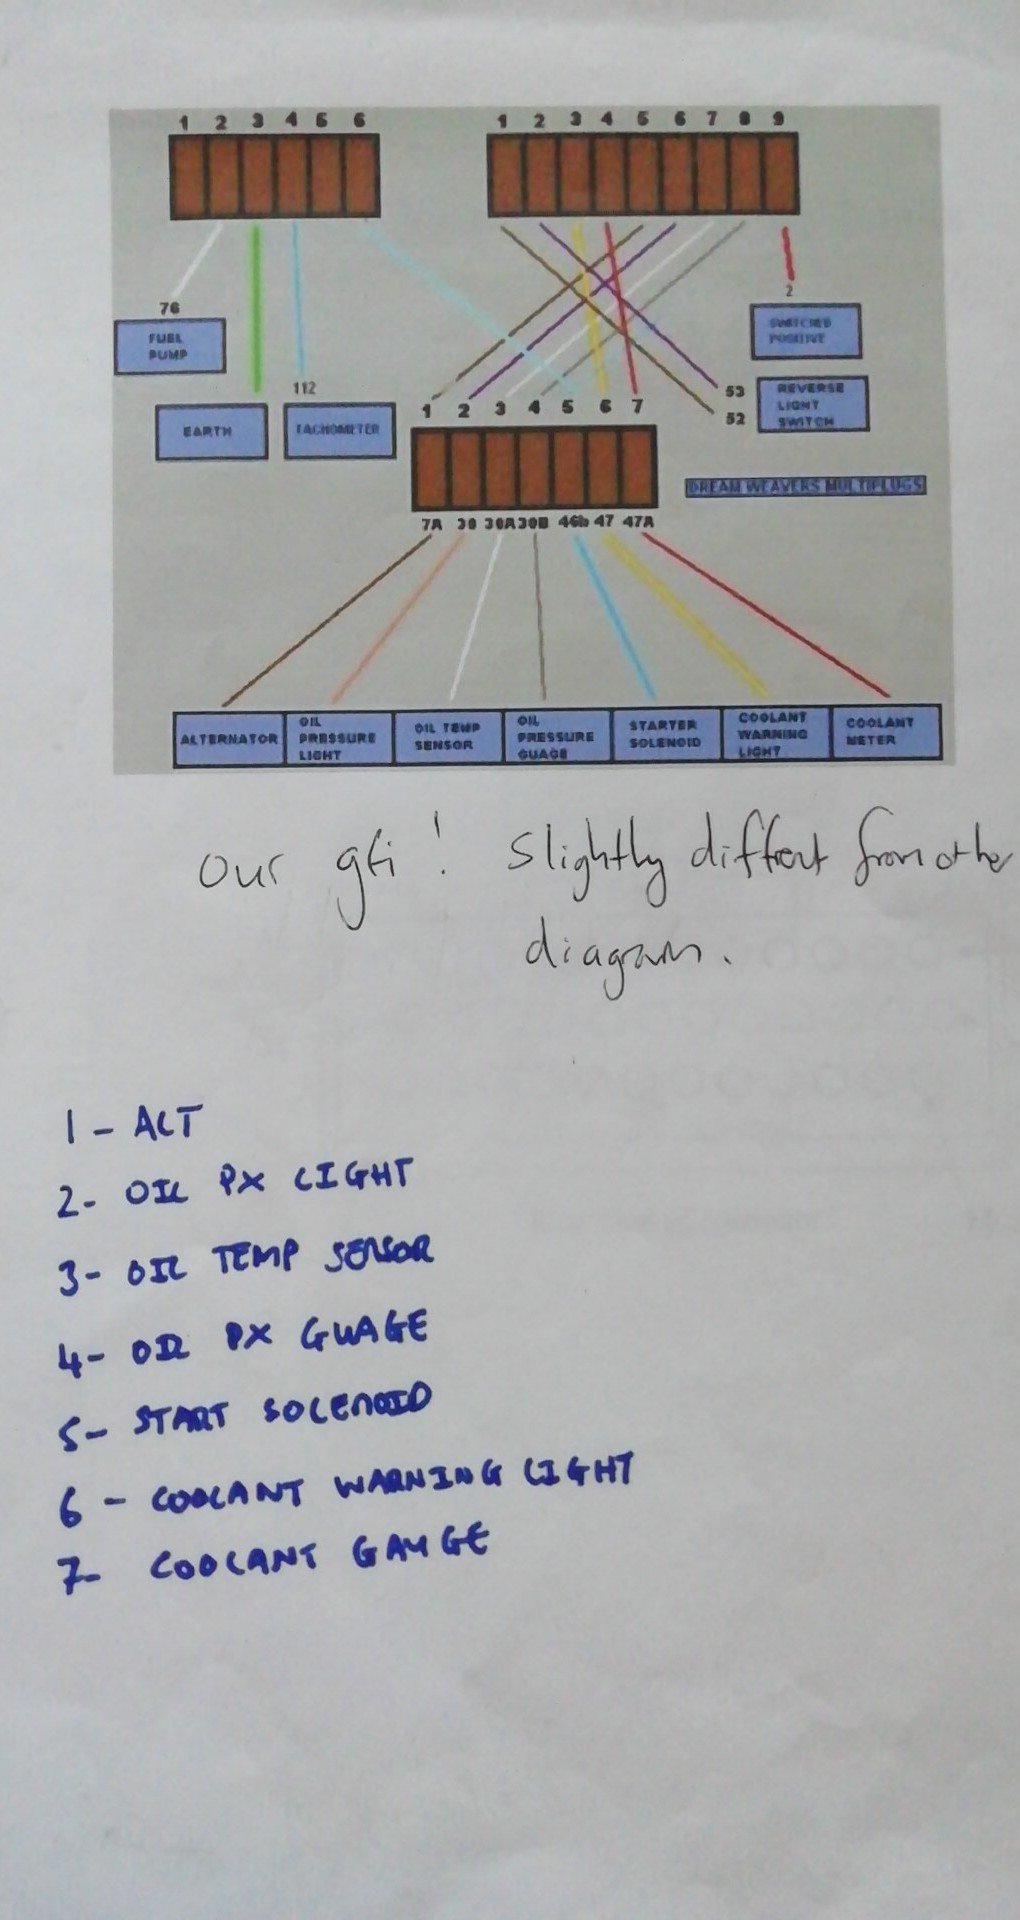 1 2 3 4 5 6
1 2 3 4 5 6 7 8 9
76
FUEL
PUMP
2
SWITCHED
POSITIVE
EARTH
112
TACHOMETER
53
52
REVERSE
LIGHT
SWITCH
1 2 3 4 5 6 7
DREAM WEAVERS MULTIPLUGS
7A 30 30A 30B 46b 47 47A
ALTERNATOR
OIL
PRESSURE
LIGHT
OIL TEMP
SENSOR
OIL
PRESSURE
GUAGE
STARTER
SOLENOID
COOLANT
WARNING
LIGHT
COOLANT
METER
Our gti! Slightly diffrent from other
diagram.
1 - ALT
2- OIL PX LIGHT
3- OIL TEMP SENSOR
4- OIL PX GUAGE
5- START SOLENOID
6 - COOLANT WARNING LIGHT
7- COOLANT GAUGE